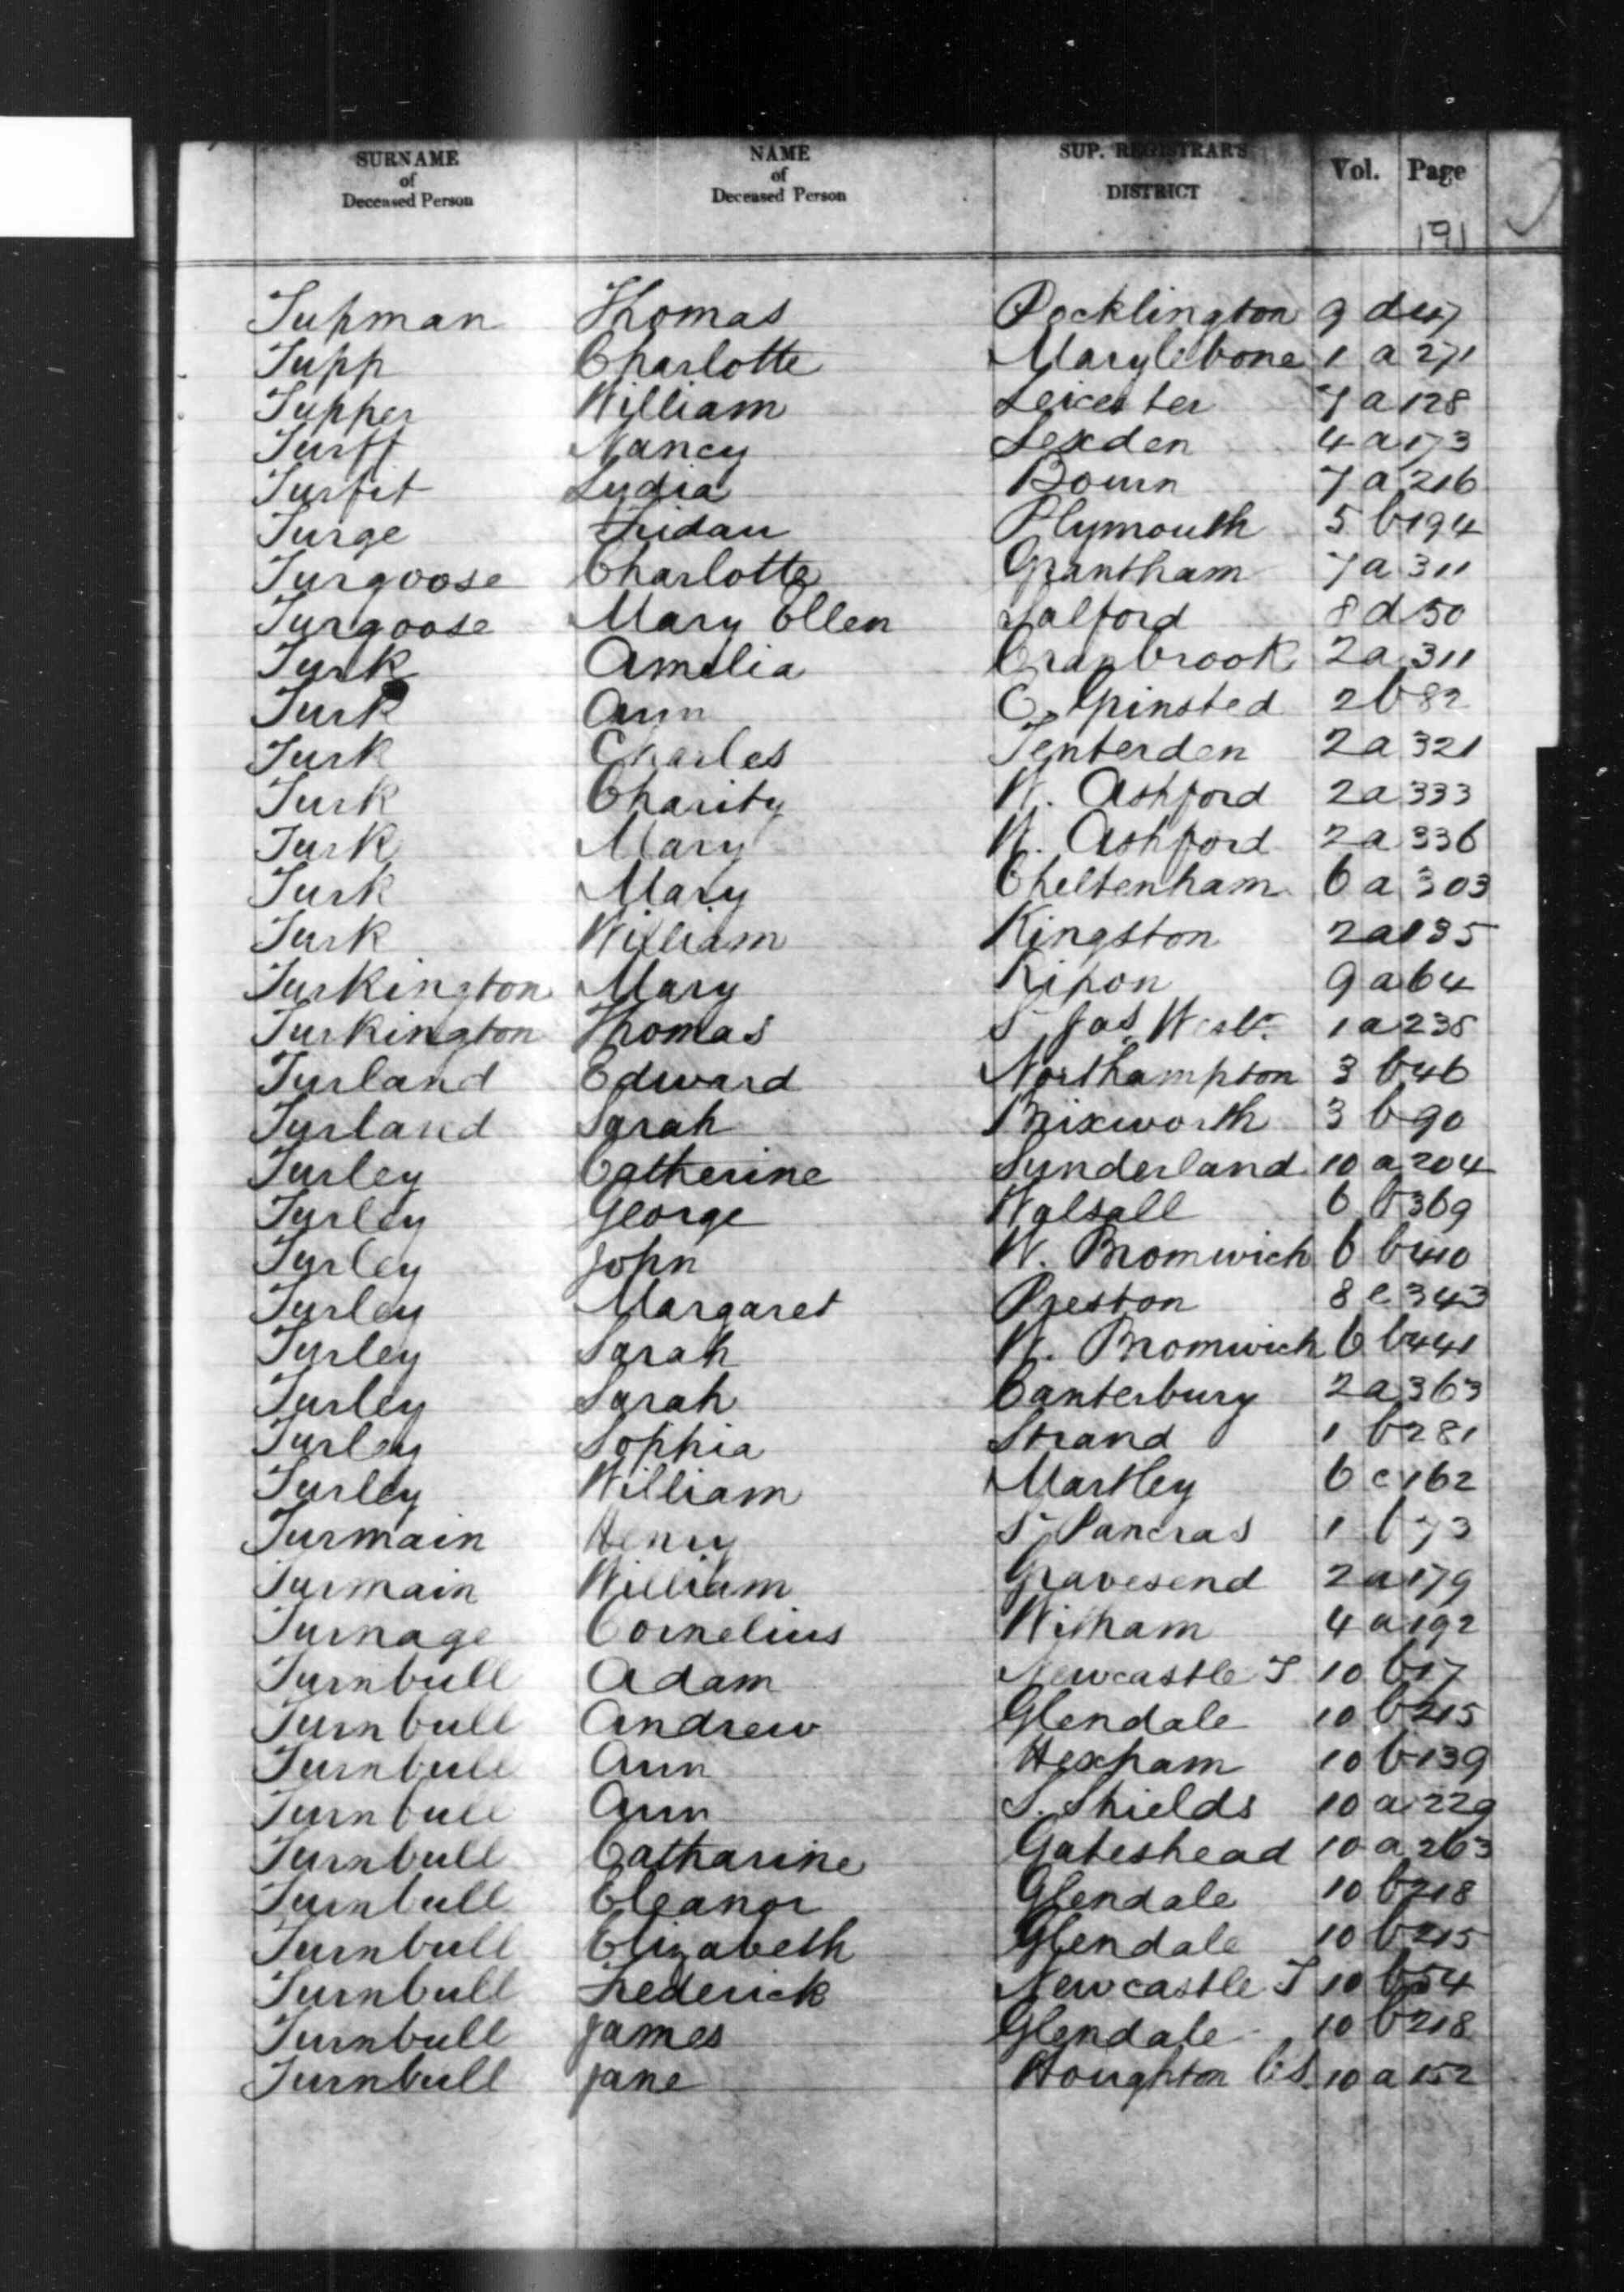 SURNAME of Deceased Person NAME of Deceased Person SUP. REGISTRAR'S DISTRICT Vol. Page
191
Tupman Thomas Pocklington 9 d 47
Tupp Charlotte Marylebone 1 a 271
Tupper William Leicester 7 a 128
Turff Nancy Lexden 4 a 173
Turfit Lydia Bourn 7 a 216
Turge Plymouth 5 b 194
Turgoose Charlotte Grantham 7 a 311
Turgoose Mary Ellen Salford 8 d 50
Turk Amelia Cranbrook 2 a 311
Turk Ann E. Grinsted 2 b 82
Turk Charles Tenterden 2 a 321
Turk Charity W. Ashford 2 a 333
Turk Mary W. Ashford 2 a 336
Turk Mary Cheltenham 6 a 303
Turk William Kingston 2 a 135
Turkington Mary Ripon 9 a 64
Turkington Thomas St Jas. Westr. 1 a 235
Turland Edward Northampton 3 b 46
Turland Sarah Brixworth 3 b 90
Turley Catherine Sunderland 10 a 204
Turley George Walsall 6 b 369
Turley John W. Bromwich 6 b 440
Turley Margaret Preston 8 e 343
Turley Sarah W. Bromwich 6 b 441
Turley Sarah Canterbury 2 a 363
Turley Sophia Strand 1 b 281
Turley William Martley 6 c 162
Turmain Henry St Pancras 1 b 73
Turmain William Gravesend 2 a 179
Turnage Cornelius Witham 4 a 192
Turnbull Adam Newcastle T 10 b 17
Turnbull Andrew Glendale 10 b 215
Turnbull Ann Hexham 10 b 139
Turnbull Ann S. Shields 10 a 229
Turnbull Catharine Gateshead 10 a 263
Turnbull Eleanor Glendale 10 b 218
Turnbull Elizabeth Glendale 10 b 215
Turnbull Frederick Newcastle T 10 b 54
Turnbull James Glendale 10 b 218
Turnbull Jane Houghton le S. 10 a 152